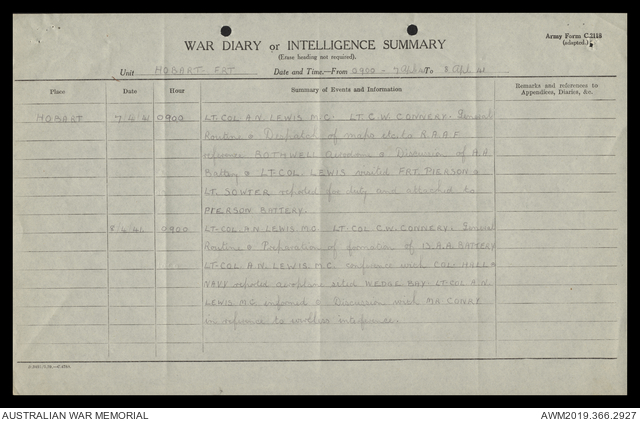 Army Form C.2118
(adapted.)
WAR DIARY or INTELLIGENCE SUMMARY
(Erase heading not required).
Unit HOBART FRT Date and Time:—From 0900 - 7 To 8 Apl. 41
Place Date Hour Summary of Events and Information Remarks and references to
Appendices, Diaries, &c.
HOBART 7.4.41 0900 LT-COL A.N. LEWIS M.C. LT C.W. CONNERY. General
Routine & Despatch of maps R.A.A.F
reference BOTHWELL Aerodrome & Discussion of A.A.
Battery & LT-COL LEWIS visited FRT PIERSON &
LT. SOWTER reported for duty and attached to
PIERSON BATTERY.
8.4.41. 0900 LT-COL A.N. LEWIS M.C. LT COL C.W. CONNERY. General
Routine & Preparation of formation of 13 A.A. BATTERY
LT-COL A.N. LEWIS M.C. conference with COL. HALL &
NAVY reported aeroplane WEDGE BAY. LT-COL A.N
LEWIS M.C. informed & Discussion with MR CONRY
in refrence to wireless interference.
AUSTRALIAN WAR MEMORIAL AWM2019.366.2927